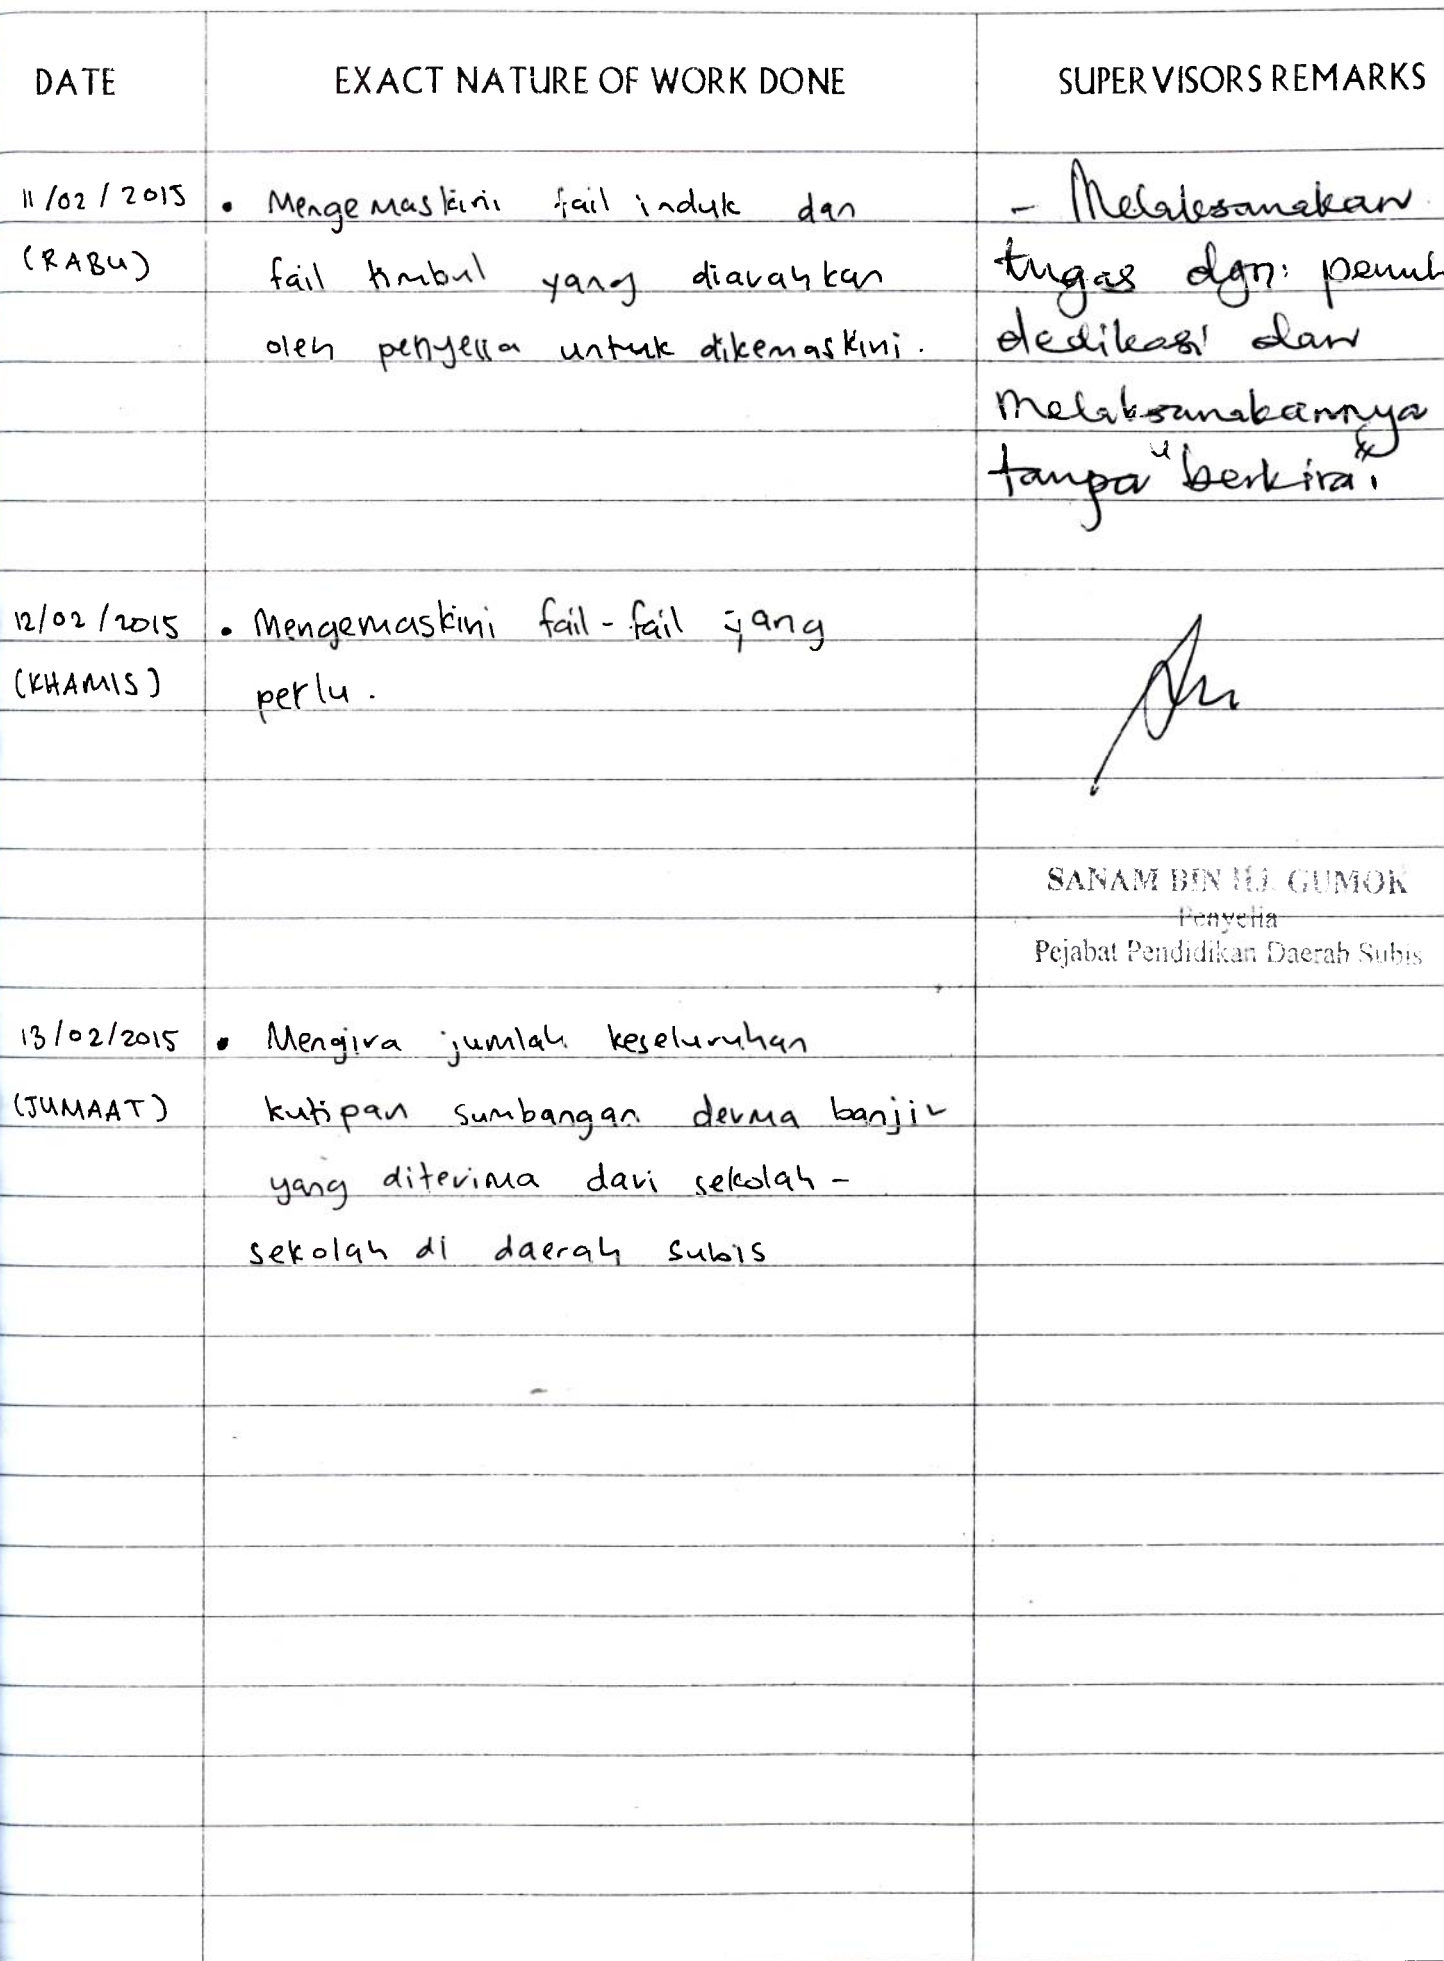 DATE
EXACT NATURE OF WORK DONE
SUPERVISORS REMARKS
11/02/2015
(RABU)
• Mengemaskini fail induk dan
fail timbul yang diarahkan
oleh penyelia untuk dikemaskini.
- Melaksanakan
tugas dgn: penuh
dedikasi dan
melaksanakannya
tanpa "berkira".
12/02/2015
(KHAMIS)
• Mengemaskini fail-fail yang
perlu.
SANAM BIN HJ. GUMOK
Penyelia
Pejabat Pendidikan Daerah Subis
13/02/2015
(JUMAAT)
• Mengira jumlah keseluruhan
kutipan sumbangan derma banjir
yang diterima dari sekolah-
sekolah di daerah Subis